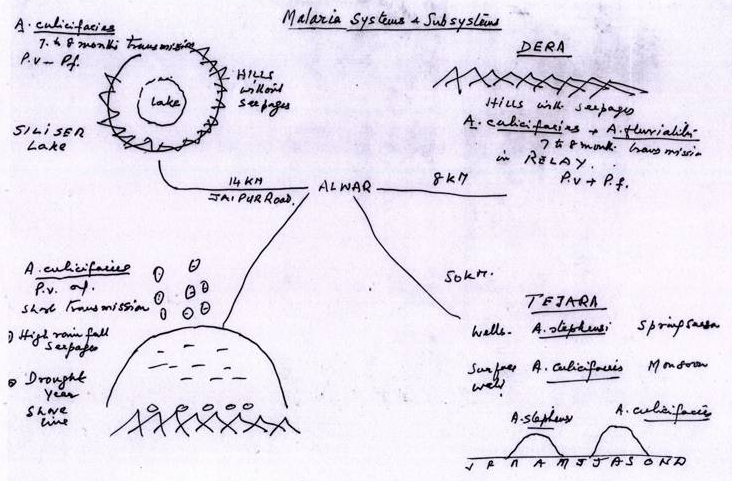 Malaria Systems & Subsystems
A. culicifacies
7 to 8 months transmission
P.v - Pf.
HILLS
without
seepages
Lake
SILISER
Lake
DERA
Hills with seepages
A. culicifacies + A. fluviatilis
7 to 8 month transmission
in RELAY.
P.v + P.f.
14 KM
JAIPUR ROAD.
ALWAR
8 KM
50 KM.
A. culicifacies
P.v.
Short transmission
1) High rain fall
Seepages
Drought
Year
Shore
line
TEJARA
Wells- A. stephensi Spring Season
Surface A. culicifacies Monsoon
A. stephensi A. culicifacies
J F M A M J J A S O N D